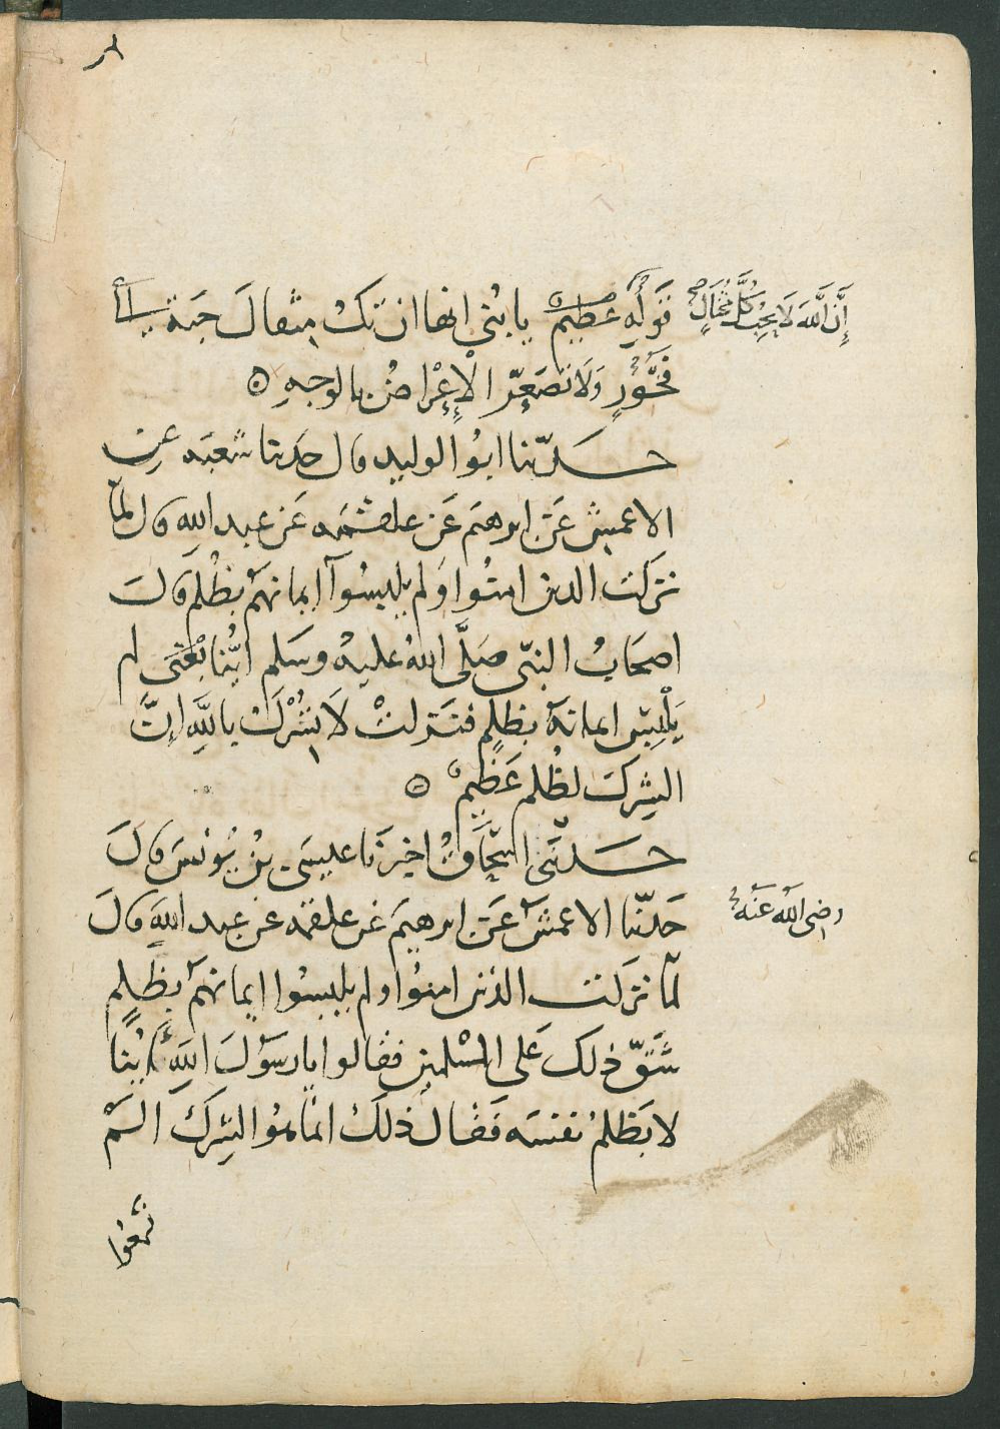 قَولِهِ عَظِيمٌ يا بُنَى انها ان تَكُ مِثقالَ حَبَة إلى
إِنَّ اللَّهَ لَا يُحِبُّ كُلَّ مُخْتَالٍ
فَخُوْرٍ وَلَا تصَعِّر الْإِعْرَاضُ بالوجهِ ۞
حَدّثنا ابوُ الوليد قال حَدثنا شعبَه عن
الاعمش عَن ابرهيم عَن علقمَه عَن عبد الله قال لمّا
نزَلت الذين امنُوا وَلم يلبسُوا ايمانهُم بظُلم قالَ
اصحَابُ النبّى صَلَّى اللهُ عليهُ وسَلم ايُّنا لم
يَلْبِس ايمانهُ بظلمٍ فنَزلتْ لَا تُشْرِكْ بِاللَّهِ إنَّ
الشِركَ لظُلم عَظِيمٌ ۞
حَدثنى اسْحَاقُ اخبرَنا عيسَى بنُ يُونسَ قالَ
حَدثنا الاعمش عَن ابرهيمَ عَن علقمَه عَن عبد اللهِ قالَ
رضى اللهُ عَنهُ
لمّا نزَلت الذين امنوُا ولم يلبسُوا ايمانهُم بظلمٍ
شَقّ ذلك عَلى المسْلمين فقالوا يا رسَوُلَ اللهِ ايُنا
لا يَظلمُ نفسَه فَقالَ ذلكَ انما هُو الشِركَ الَمْ
تسْمعُوا